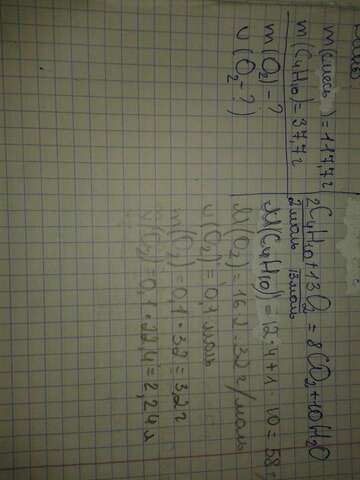 m(смесь) = 117,7г
m(C4H10) = 37,7г
m(O2) - ?
υ(O2 - ?)
2C4H10 + 13O2 = 8CO2 + 10H2O
2моль 13моль
M(C4H10) = 12·4+1·10=58
M(O2) = 16·2=32г/моль
υ(O2) = 0,1 моль
m(O2) = 0,1·32=3,2г
υ(O2) = 0,1·22,4=2,24л